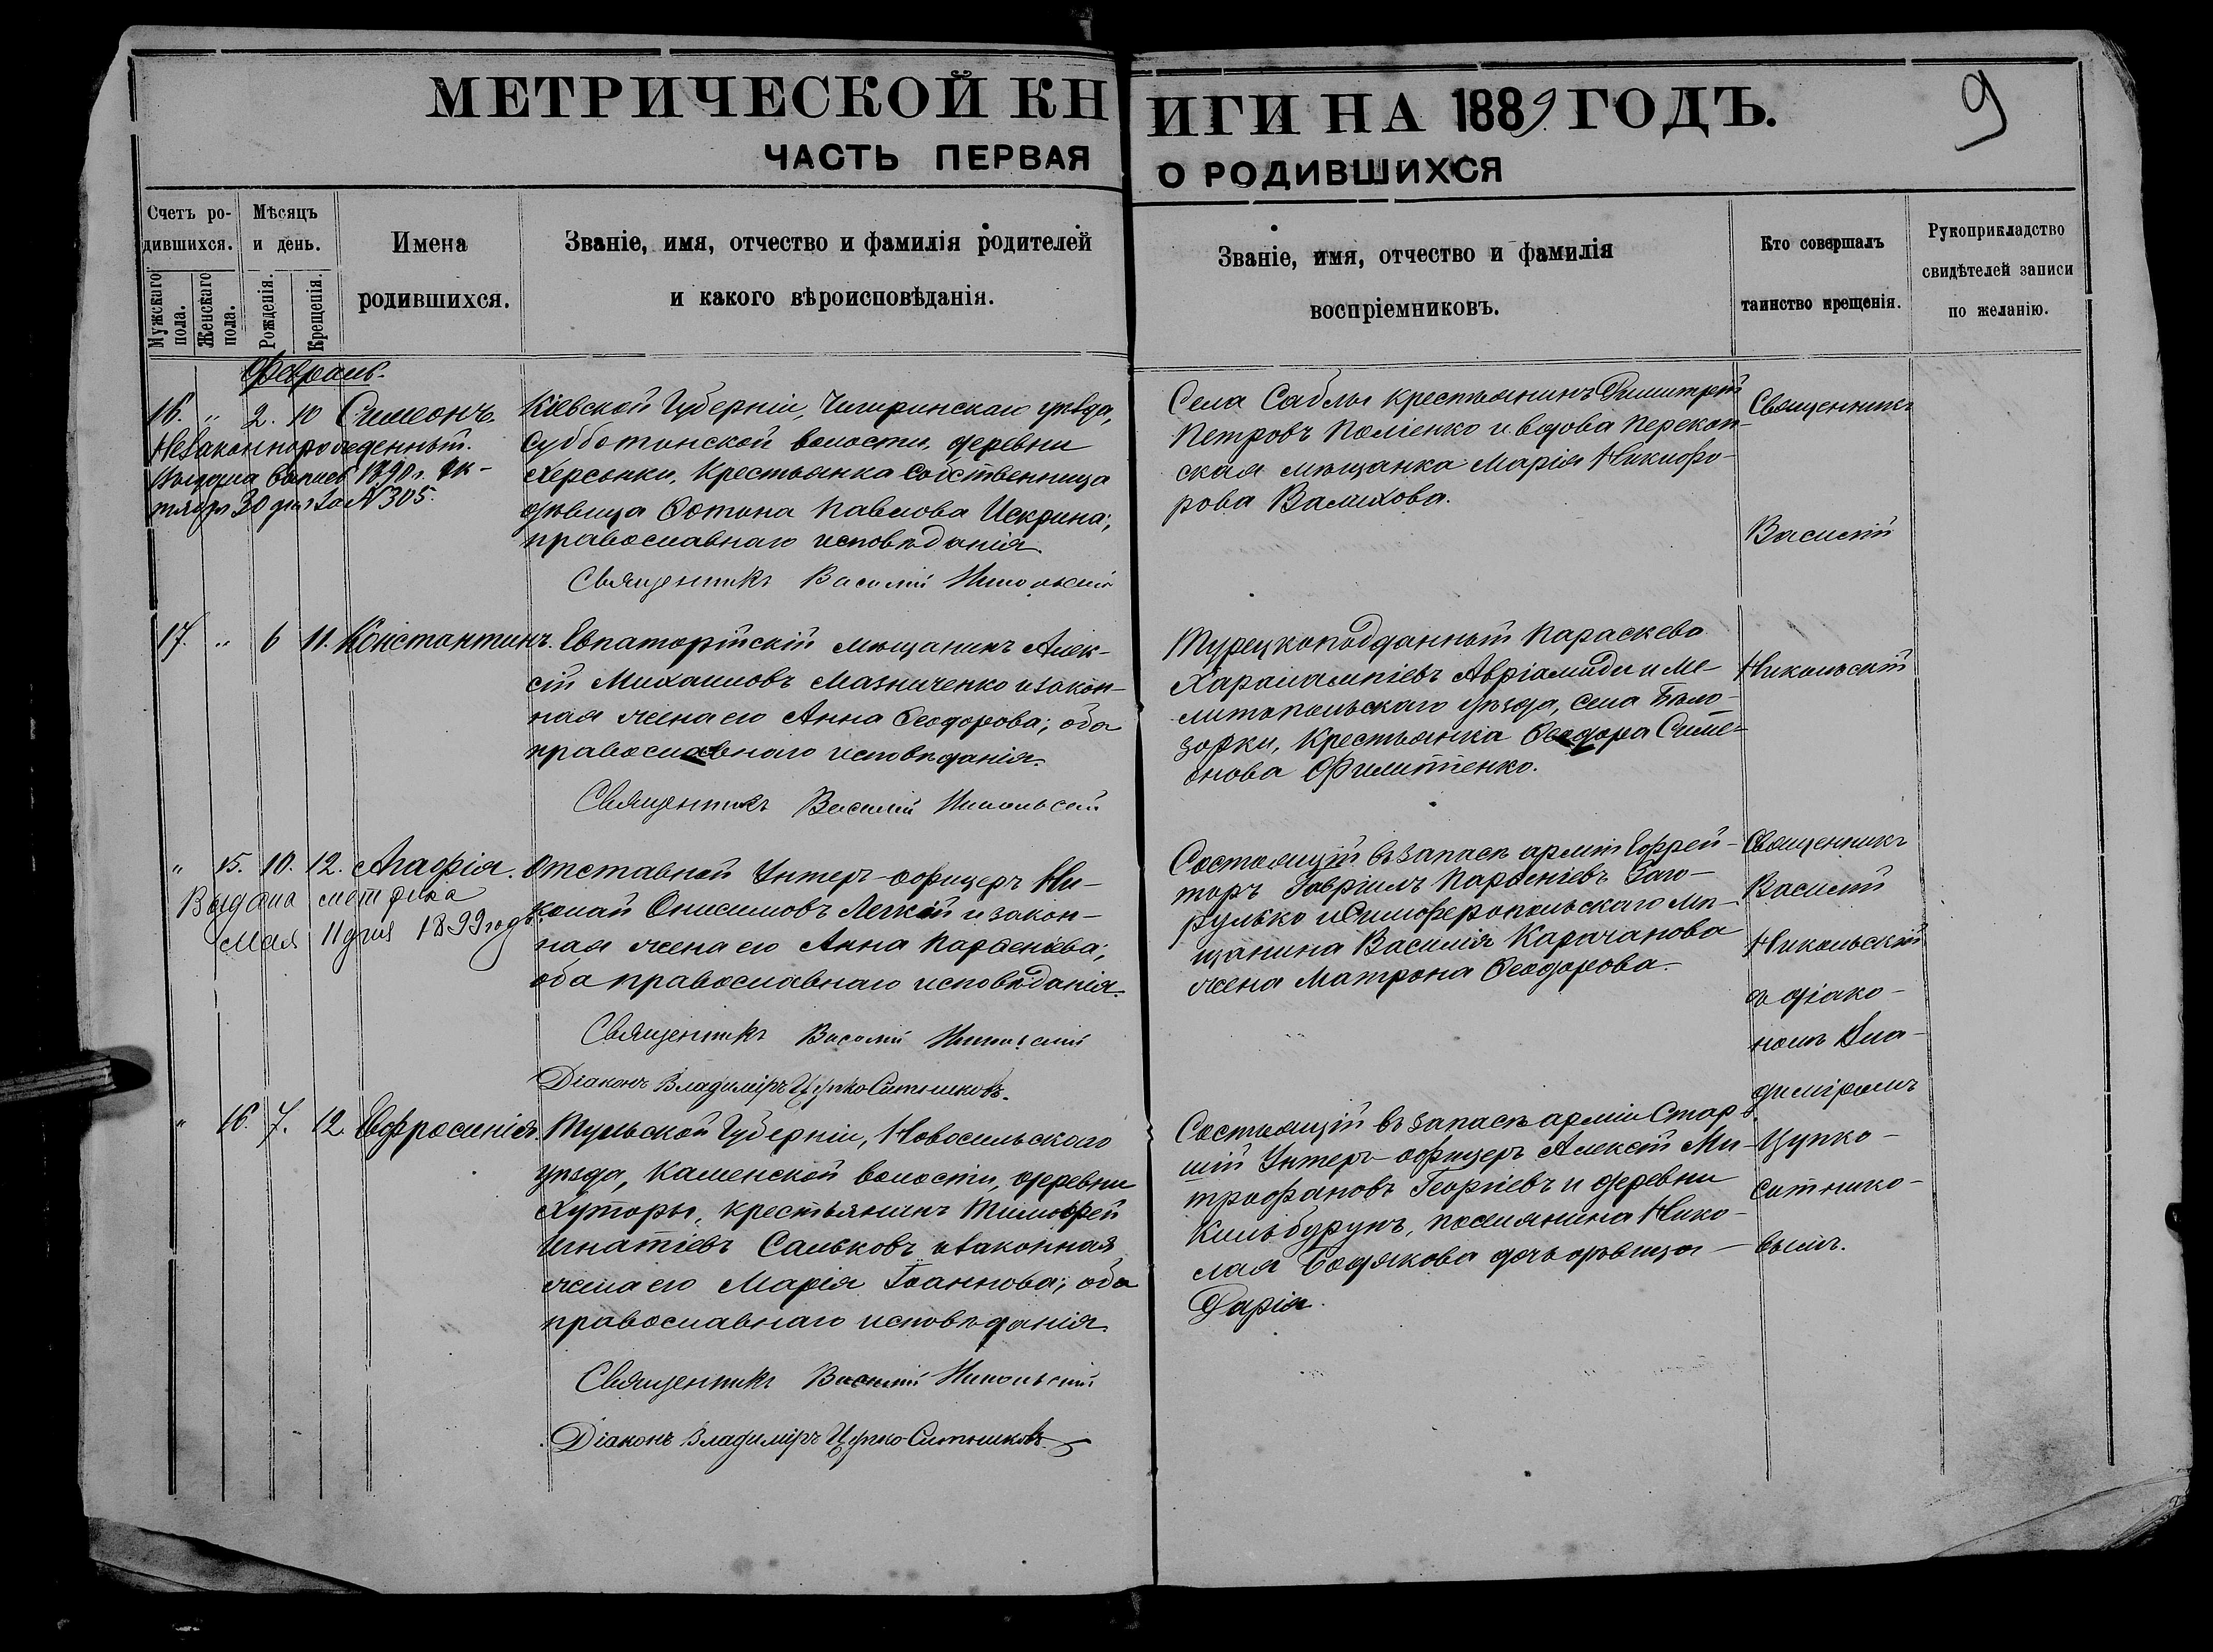 МЕТРИЧЕСКОЙ КНИГИ НА 1889 ГОДЪ.
9
ЧАСТЬ ПЕРВАЯ О РОДИВШИХСЯ
Счетъ родившихся.
Мужскаго пола.
Женскаго пола.
Мѣсяцъ и день.
Рожденія.
Крещенія.
Имена
родившихся.
Званіе, имя, отчество и фамилія родителей
и какого вѣроисповѣданія.
Званіе, имя, отчество и фамилія
воспріемниковъ.
Кто совершалъ
таинство крещенія.
Рукоприкладство
свидѣтелей записи
по желанію.
Февраль.
16. " 2. 10 Симеонъ.
Незаконнорожденный.
Выдана выпись 1890 г. Ок-
тября 30 дня за № 305.
Кіевской Губерніи, Чигиринскаго уѣзда,
Субботинской волости, деревни
Херсонки, Крестьянка собственница
дѣвица Фотина Павлова Искрина;
православнаго исповѣданія.
Священникъ Василій Никольскій
Села Саблы крестьянинъ Димитрій
Петровъ Поліенко и вдова Перекоп-
ская мѣщанка Марія Никифо-
рова Валихова.
Священникъ
Василій
17. " 6 11. Константинъ.
Евпаторійскій мѣщанинъ Алек-
сій Михаиловъ Мазниченко и закон-
ная жена его Анна Феодорова; оба
православнаго исповѣданія.
Священникъ Василій Никольскій
Турецкоподданный Параскева
Харалампіевъ Авріамиди и Ме-
литопольскаго уѣзда, села Бѣло-
зорки, Крестьянка Феодора Симе-
онова Филиппенко.
Никольскій
" 15. 10. 12. Агафія.
Выдана метрика
Мая 11 дня 1899 года
Отставной Унтеръ-офицеръ Ни-
колай Онисимовъ Легкій и закон-
ная жена его Анна Парѳенова;
оба православнаго исповѣданія.
Священникъ Василій Никольскій
Діаконъ Владиміръ Цупко-Ситниковъ.
Состоящій въ запасѣ арміи Ефрей-
торъ Гавріилъ Парѳеніевъ Гаго-
рулько и Симферопольскаго мѣ-
щанина Василія Карачанова
жена Матрона Феодорова.
Священникъ
Василій
Никольскій
съ діако-
номъ Вла-
диміромъ
" 16. 7. 12. Евфросинія.
Тульской Губерніи, Новосильскаго
уѣзда, Каменской волости, деревни
Хуторы, крестьянинъ Тимофей
Игнатіевъ Сальковъ и законная
жена его Марія Іоаннова; оба
православнаго исповѣданія.
Священникъ Василій Никольскій
Діаконъ Владиміръ Цупко-Ситниковъ
Состоящій въ запасѣ арміи Стар-
шій Унтеръ-офицеръ Алексій Ми-
трофановъ Георгіевъ и деревни
Кильбурунъ, поселянина Нико-
лая Бодякова дочь дѣвица
Дарія.
Цупко-
Ситнико-
вымъ.